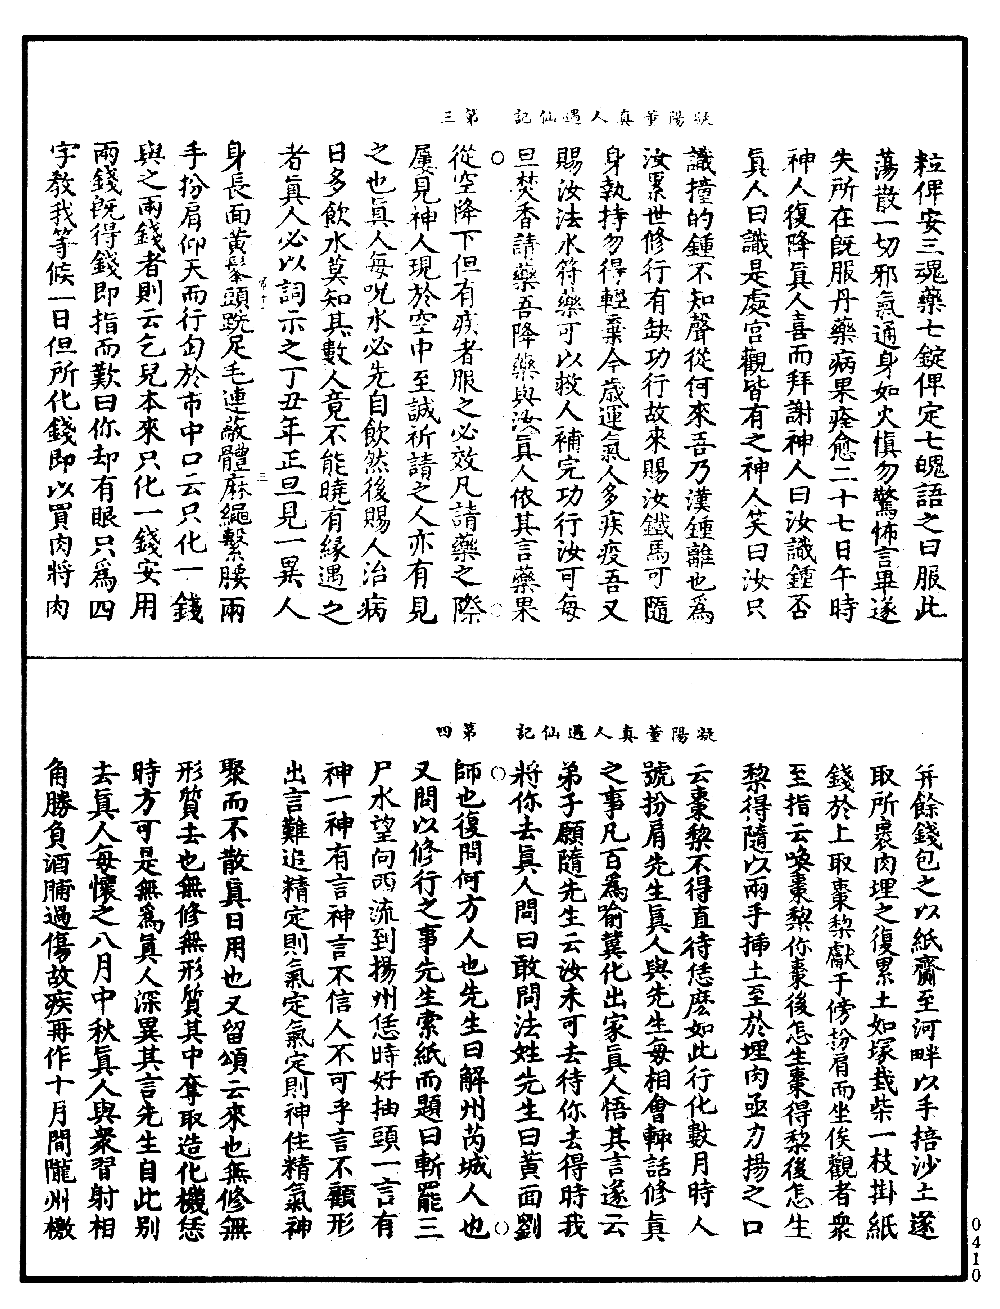 凝陽董真人遇仙記　第三
粒俾安三魂藥七錠俾定七魄語之曰服此
蕩散一切邪氣通身如火慎勿驚怖言畢遂
失所在既服丹藥病果痊愈二十七日午時
神人復降真人喜而拜謝神人曰汝識鍾否
真人曰識是處宮觀皆有之神人笑曰汝只
識撞的鍾不知聲從何來吾乃漢鍾離也為
汝累世修行有缺功行故來賜汝鐵馬可隨
身執持勿得輕棄今歲運氣人多疾疫吾又
賜汝法水符藥可以救人補完功行汝可每
旦焚香請藥吾降藥與汝真人依其言藥果
從空降下但有疾者服之必效凡請藥之際
屢見神人現於空中至誠祈請之人亦有見
之也真人每呪水必先自飲然後賜人治病
日多飲水莫知其數人竟不能曉有緣遇之
者真人必以詞示之丁丑年正旦見一異人
三
身長面黃鬅頭跣足毛連敝體麻繩繫腰兩
手扮肩仰天而行匄於市中口云只化一錢
與之兩錢者則云乞兒本來只化一錢安用
兩錢既得錢即指而歎曰你却有眼只為四
字教我等候一日但所化錢即以買肉將肉
凝陽董真人遇仙記　第四
并餘錢包之以紙齎至河畔以手掊沙土遂
取所裹肉埋之復累土如塚栽柴一枝掛紙
錢於上取棗梨獻于傍扮肩而坐俟觀者衆
至指云喚棗梨你棗後怎生棗得梨後怎生
梨得隨以兩手插土至於埋肉亟力揚之口
云棗梨不得直待恁麽如此行化數月時人
號扮肩先生真人與先生每相會輙話修真
之事凡百為喻冀化出家真人悟其言遂云
弟子願隨先生云汝未可去待你去得時我
將你去真人問曰敢問法姓先生曰黃面劉
師也復問何方人也先生曰解州芮城人也
又問以修行之事先生索紙而題曰斬罷三
尸水望向西流到揚州恁時好抽頭一言有
神一神有言神言不信人不可乎言不顧形
出言難追精定則氣定氣定則神住精氣神
聚而不散真日用也又留頌云來也無修無
形質去也無修無形質其中奪取造化機恁
時方可是無為真人深異其言先生自此別
去真人每懷之八月中秋真人與衆習射相
角勝負酒脯過傷故疾再作十月間隴州檄
0410